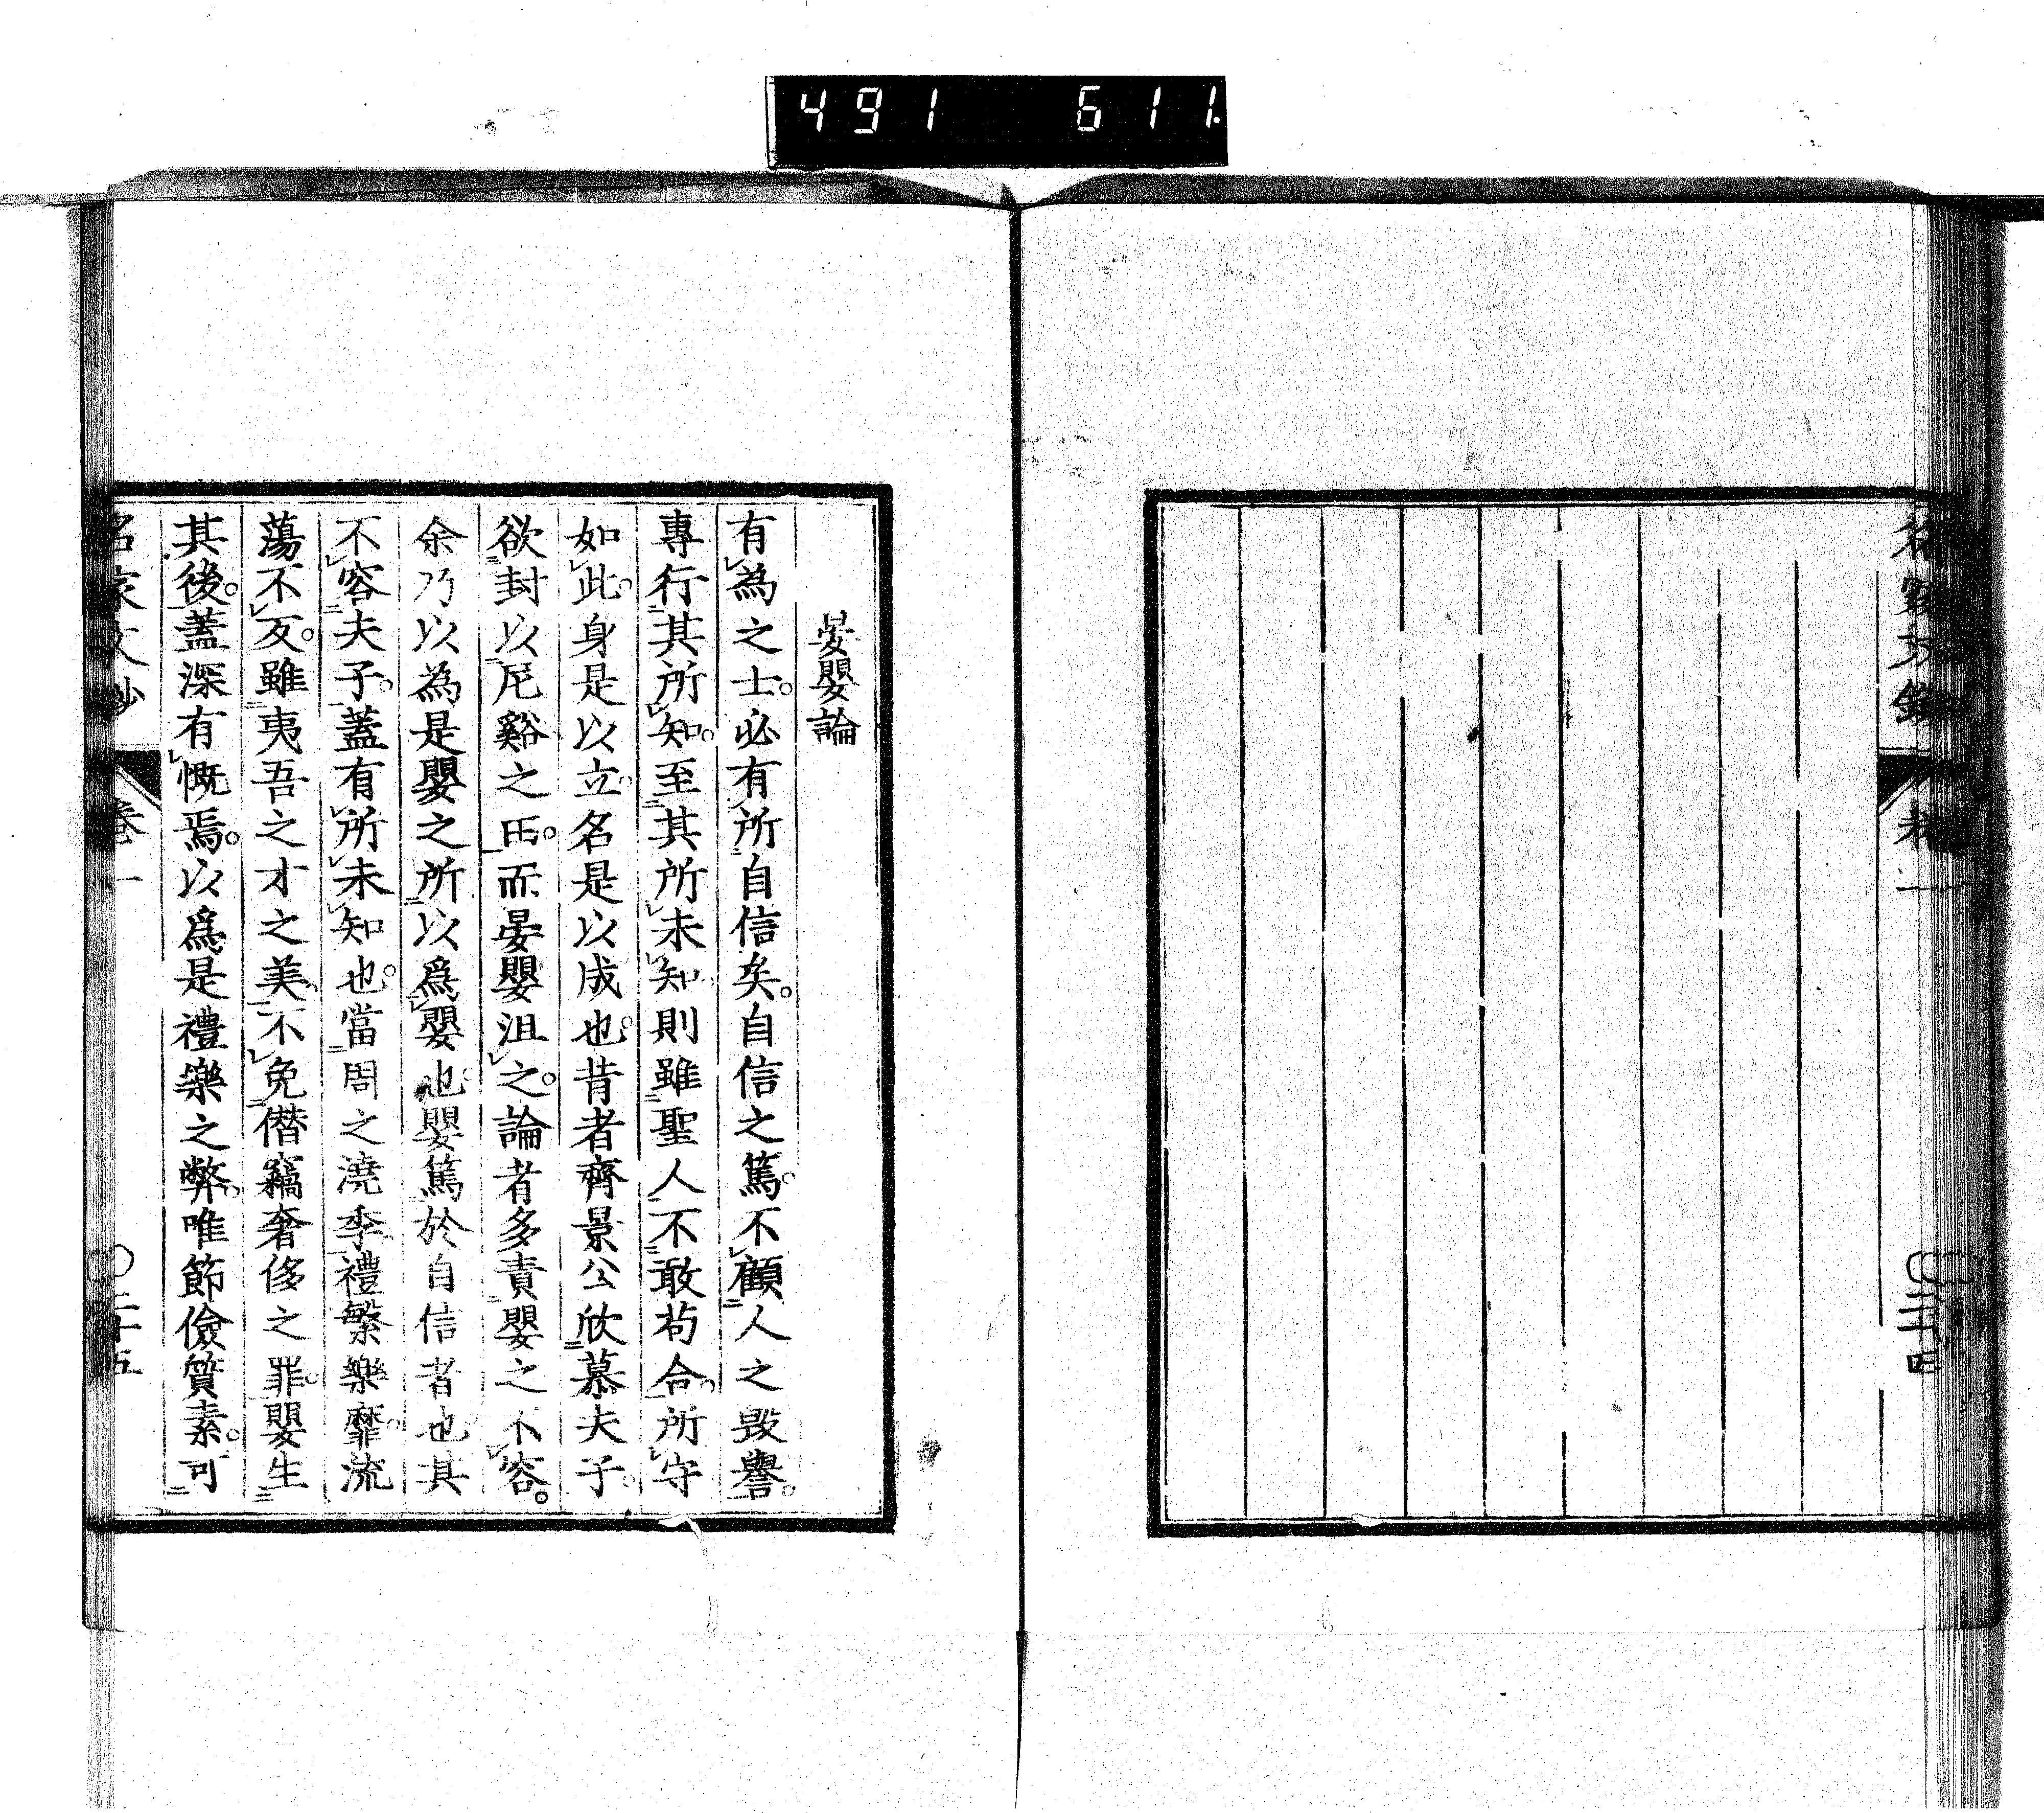 491 611.
晏嬰論
有為之士。必有所自信矣。自信之篤。不顧人之毀譽。
專行其所知。至其所未知。則雖聖人不敢苟合。所守
如此。身是以立。名是以成也。昔者齊景公欣慕夫子。
欲封以尼谿之田。而晏嬰沮之。論者多責嬰之不容。
余乃以為是嬰之所以爲嬰也。嬰篤於自信者也。其
不容夫子。蓋有所未知也。當周之澆季。禮繁樂靡。流
蕩不反。雖夷吾之才之美。不免僭竊奢侈之罪。嬰生
其後。蓋深有慨焉。以爲是禮樂之弊。唯節儉質素。可
名家文抄 卷一 〇二十五